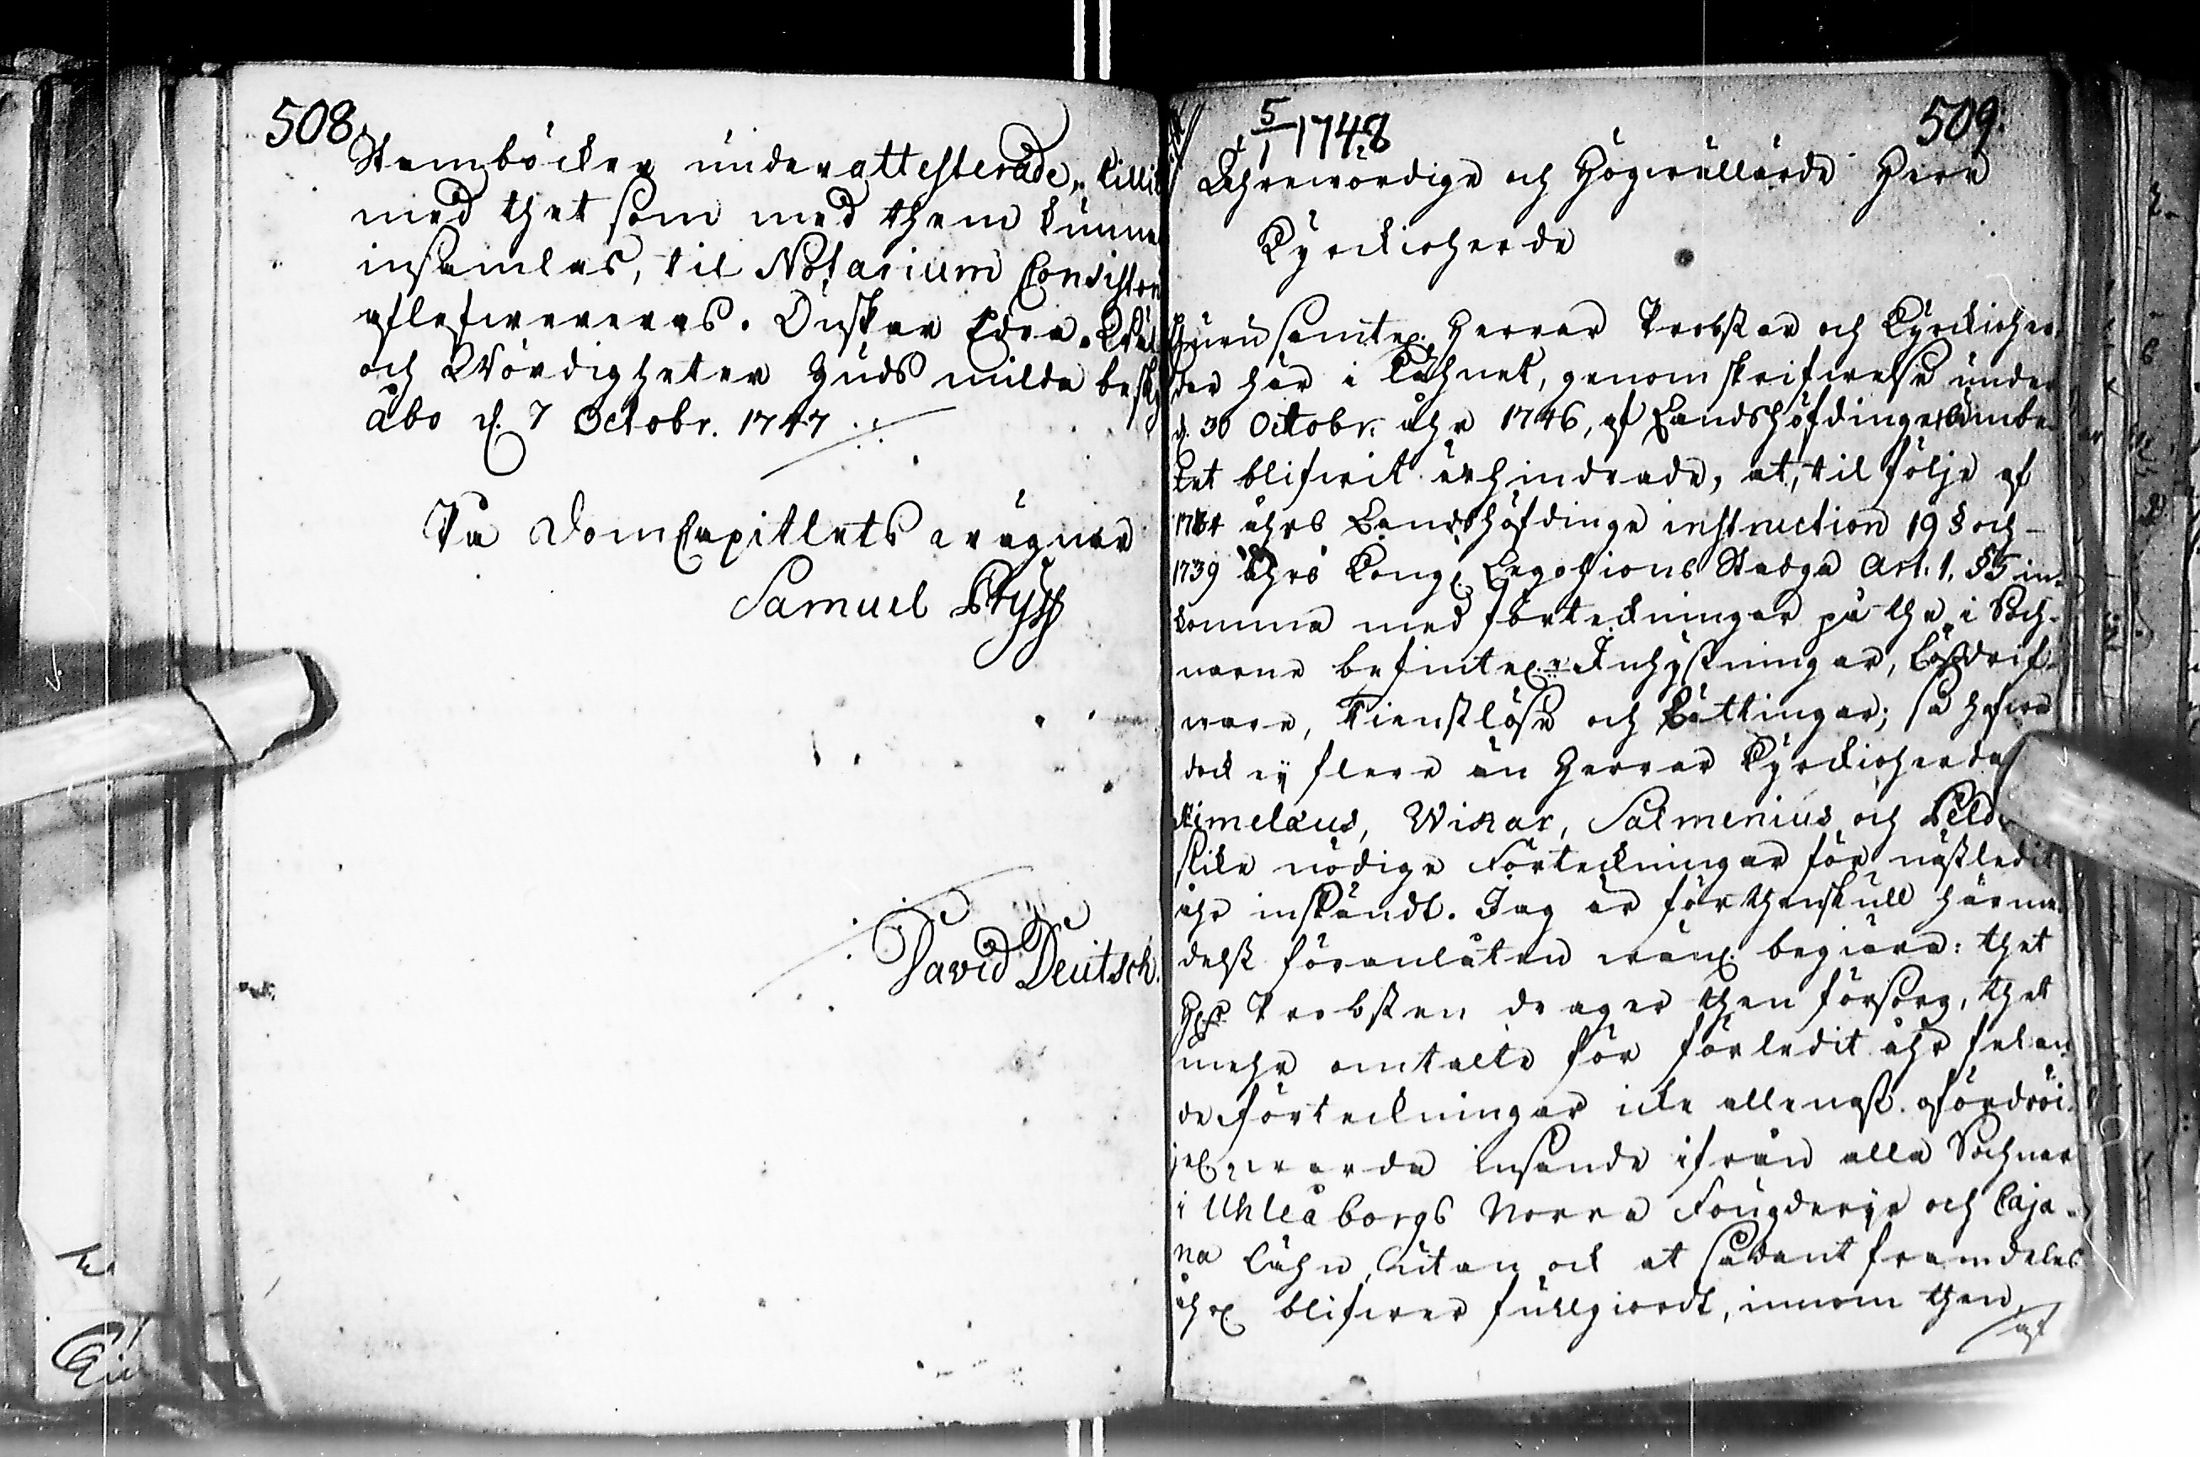 508
Stamböcker under attesterade, tillik
med thet som med them kunna
insamlas, til Notarium Consistor
aflefwereras. Önskar Edra
och Wördigheter Guds milda besky
Åbo d. 7 Octobr. 1747
På DomCapitlets wägnar
Samuel Pryss
David Deutsch.
5/1 1748
509.
Ehrewördige och Högwällärde Herr
Kyrckioherde
Hurusamtel. Herrar Probstar och Kyrckioher-
der här i Lähnet, genom skrifwelse under
d. 30 Octobr. åhr 1746, af Landshöfdinge Embe-
tet blifwit erhindrade, at, til följe af
1734 åhrs Landshöfdinge instruction 19 § och
1739 åhrs Kongl. Legohions Stadga Art. 1. § 5 in-
komma med förteckningar på the i Soch-
narne befintel. Inhysningar, Lösdrif-
ware, tienstlöse och Lättingar; så hafwa
dock ej flere än Herrar Kyrckioherdar
Wikar, Salmenius och
slike nödige Förteckningar för nästledit
åhr insändt. Jag är förthenskull härme-
delst föranlåten wänl. begiära: thet
H. Probsten drager then försorg, thet
mehr omtalte för förledit åhr felan-
de förteckningar icke allenast ofördröi-
jel. warda insände ifrån alla Sochnar
i Uhleåborgs Norra Fougderije och Caja-
na Lähn, utan ock at sådant framdeles
åhrl. blifwer fullgiordt, innom then
af